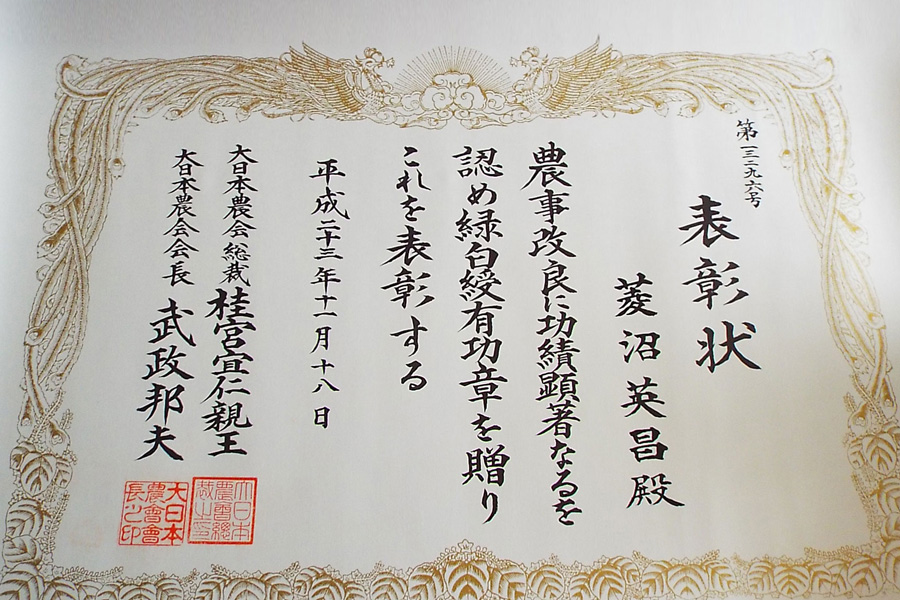 第一三二九六号
表彰状
菱沼英昌殿
農事改良に功績顕著なるを
認め緑白綬有功章を贈り
これを表彰する
平成二十三年十一月十八日
大日本農会総裁 桂宮宜仁親王
大日本農会会長 武政邦夫
大日本
農會總
裁之印
大日本
農會會
長之印